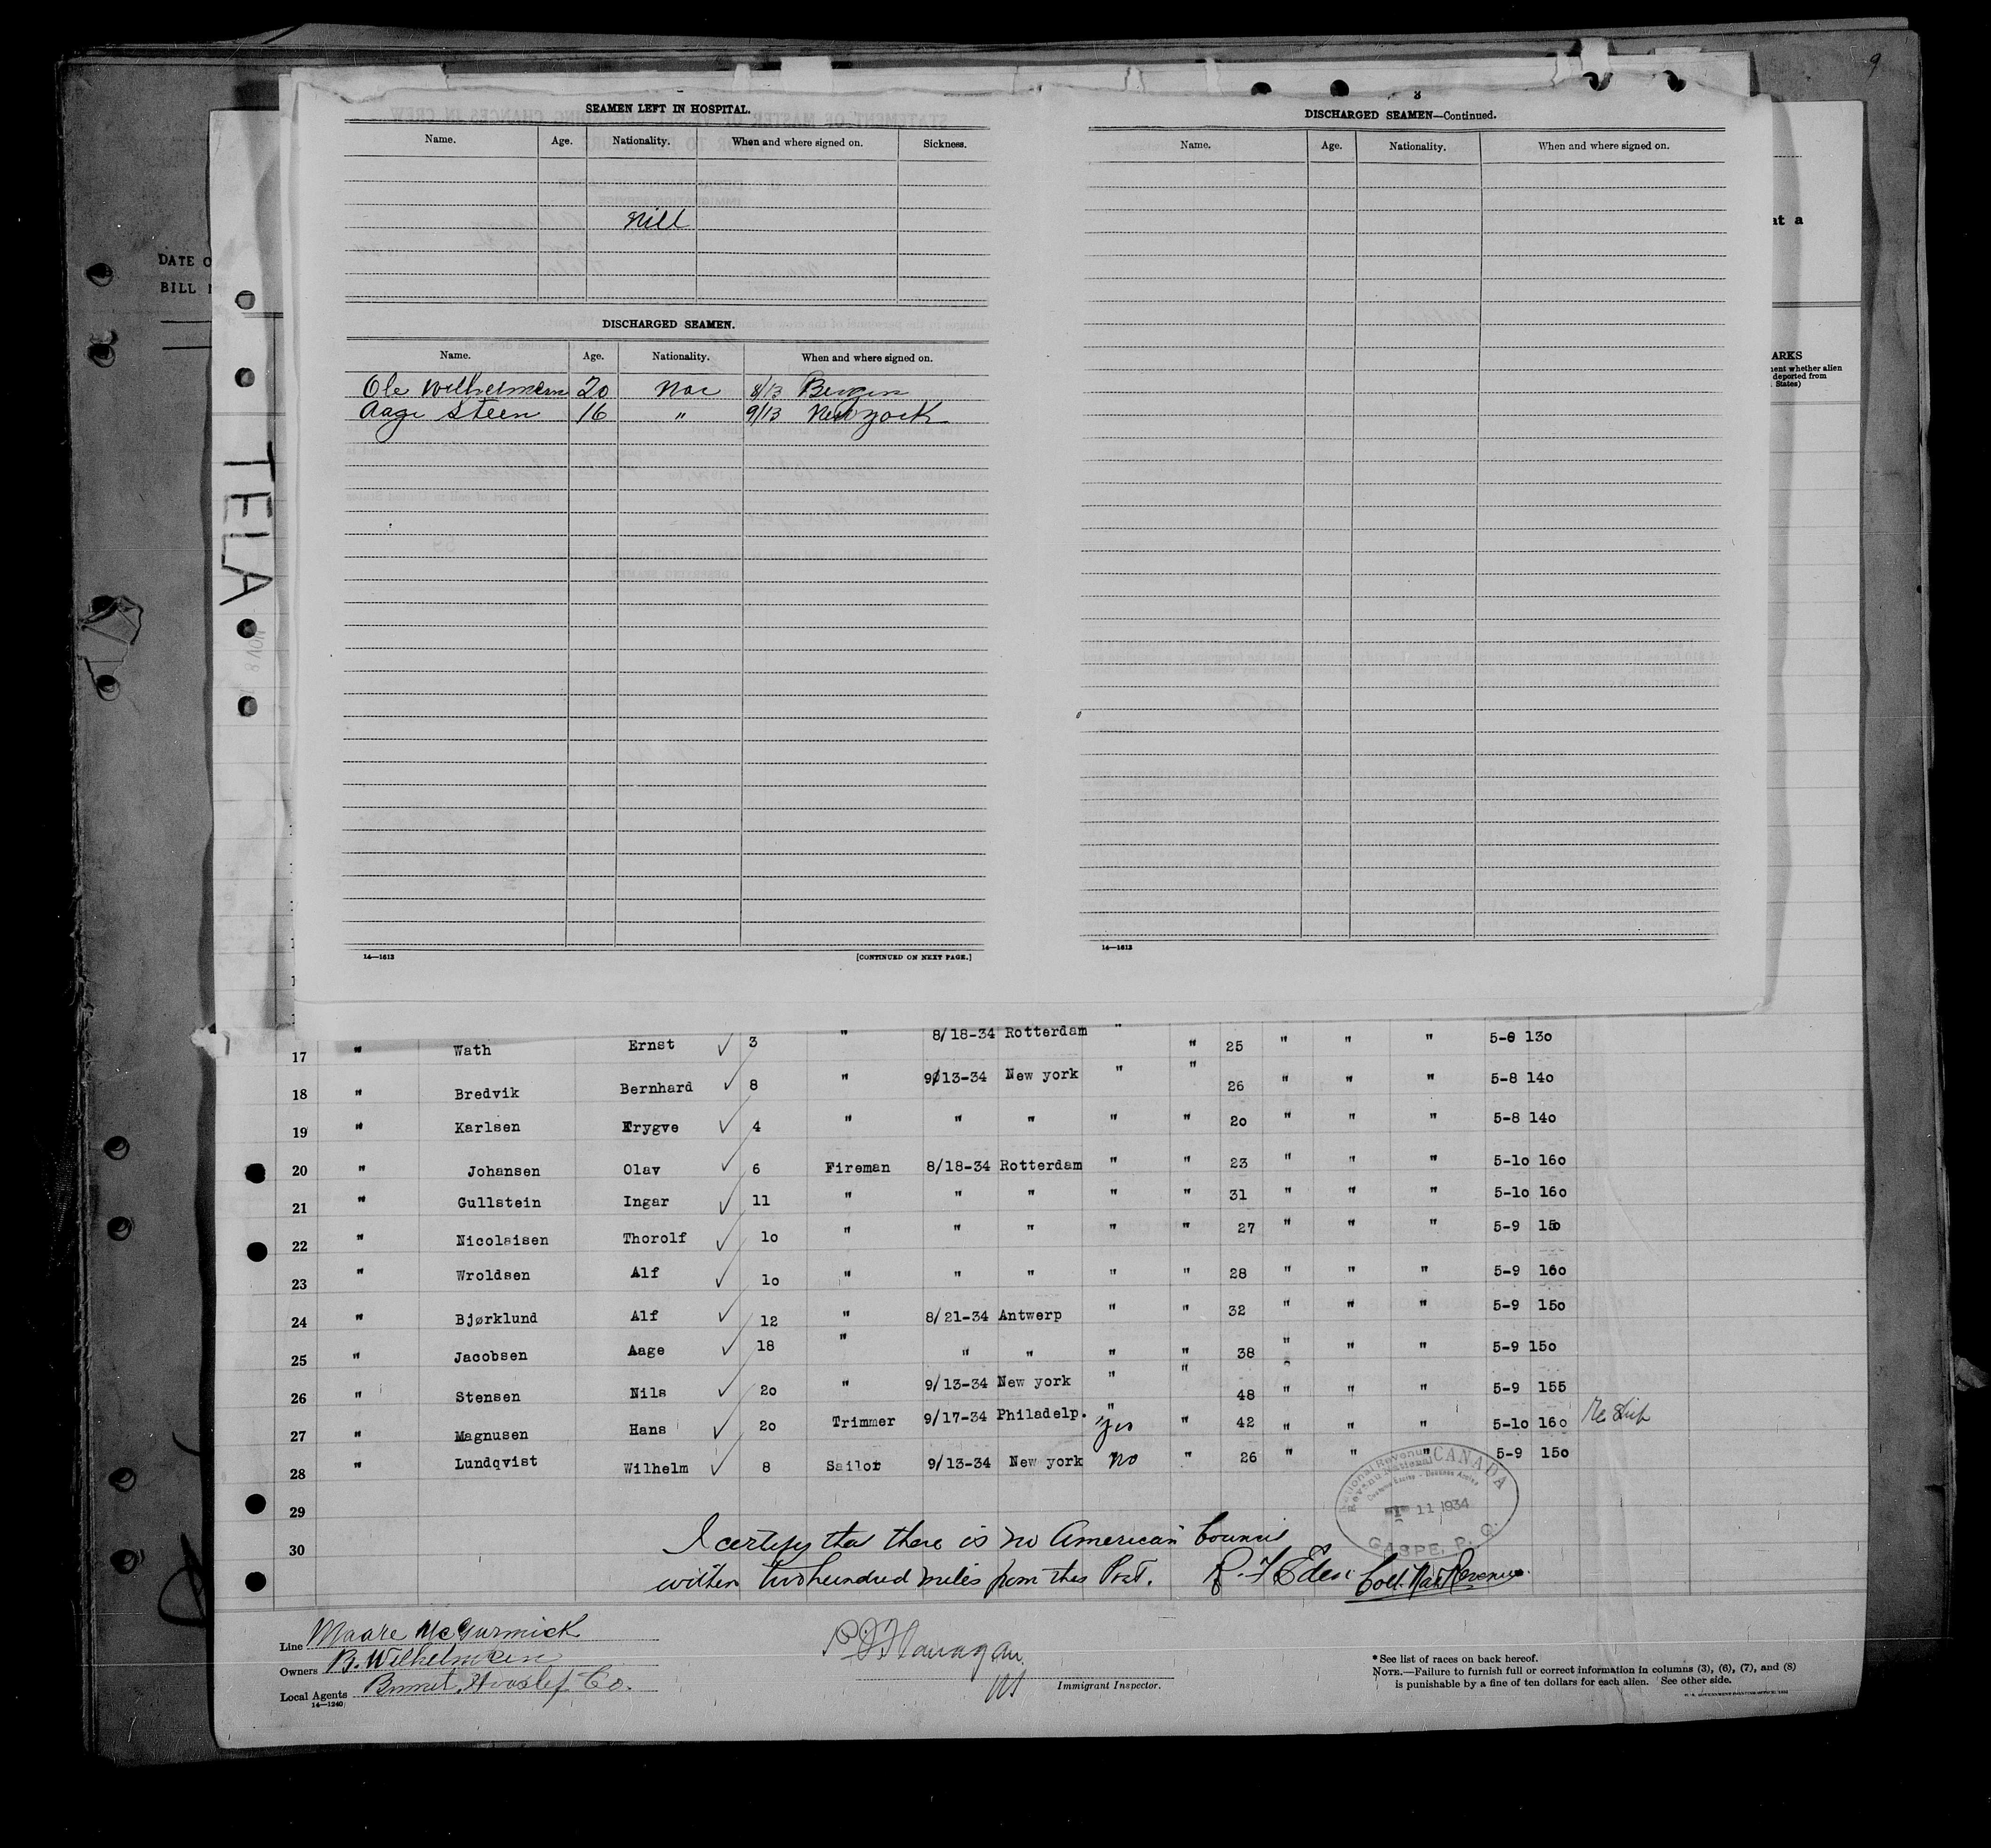 9
DATE O
BILL
TELA
NOV 8
SEAMEN LEFT IN HOSPITAL.
Name. Age. Nationality. When and where signed on. Sickness.
Nill
DISCHARGED SEAMEN.
Name. Age. Nationality. When and where signed on.
Ole Wilhelmsen 20 Nor 8/13 Bergen
Aage Steen 16 " 9/13 New york
14—1613 [CONTINUED ON NEXT PAGE.]
3
DISCHARGED SEAMEN—Continued.
Name. Age. Nationality. When and where signed on.
14—1613
at a
ARKS
ment whether alien
deported from
States)
17 " Wath Ernst ✓ 3 " 8/18-34 Rotterdam " " 25 " " " 5-8 130
18 " Bredvik Bernhard ✓ 8 " 9/13-34 New york " " 26 " " " 5-8 140
19 " Karlsen Trygve ✓ 4 " " " " " 20 " " " 5-8 140
20 " Johansen Olav ✓ 6 Fireman 8/18-34 Rotterdam " " 23 " " " 5-10 160
21 " Gullstein Ingar ✓ 11 " " " " " 31 " " " 5-10 160
22 " Nicolaisen Thorolf ✓ 10 " " " " " 27 " " " 5-9 150
23 " Wroldsen Alf ✓ 10 " " " " " 28 " " " 5-9 160
24 " Bjørklund Alf ✓ 12 " 8/21-34 Antwerp " " 32 " " " 5-9 150
25 " Jacobsen Aage ✓ 18 " " " " " 38 " " " 5-9 150
26 " Stensen Nils ✓ 20 " 9/13-34 New york " " 48 " " " 5-9 155
27 " Magnusen Hans ✓ 20 Trimmer 9/17-34 Philadelp. " yes " 42 " " " 5-10 160
28 " Lundqvist Wilhelm ✓ 8 Sailor 9/13-34 New york no " 26 " " " 5-9 150
29
30
National Revenue CANADA
Revenu National
11 1934
GASPE, P. Q.
I certify that there is no American Council
within two hundred miles from this Port. R. F Eden Coll. Nat Revenue.
Line Moore McCurmick
Owners B. Wilhelmsen
Local Agents
14—1240
Immigrant Inspector.
* See list of races on back hereof.
NOTE.—Failure to furnish full or correct information in columns (3), (6), (7), and (8)
is punishable by a fine of ten dollars for each alien. See other side.